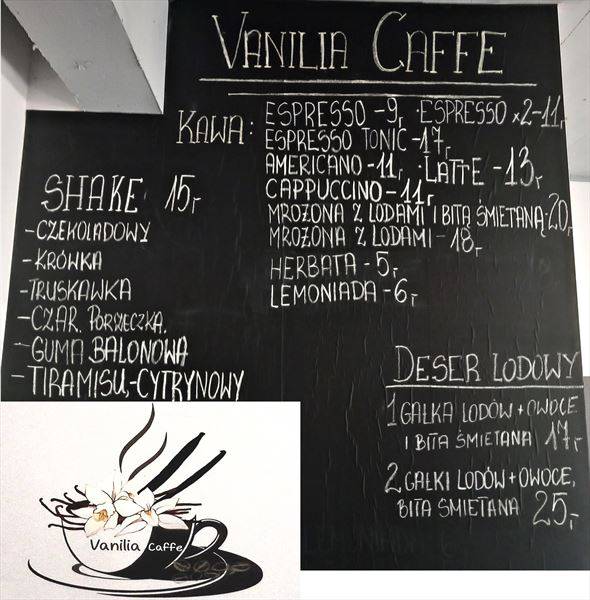 VANILIA CAFFE
KAWA: ESPRESSO - 9,- · ESPRESSO x2 - 11,-
ESPRESSO TONIC - 17,-
AMERICANO - 11,- · LATTE - 13,-
CAPPUCCINO - 11,-
MROŻONA Z LODAMI I BITĄ ŚMIETANĄ - 20,-
MROŻONA Z LODAMI - 18,-
HERBATA - 5,-
LEMONIADA - 6,-
SHAKE 15,-
- CZEKOLADOWY
- KRÓWKA
- TRUSKAWKA
- CZAR. PORZECZKA,
- GUMA BALONOWA
- TIRAMISU, - CYTRYNOWY
DESER LODOWY
1 GAŁKA LODÓW + OWOCE
I BITA ŚMIETANA 17,-
2 GAŁKI LODÓW + OWOCE,
BITA ŚMIETANA 25,-
Vanilia Caffe